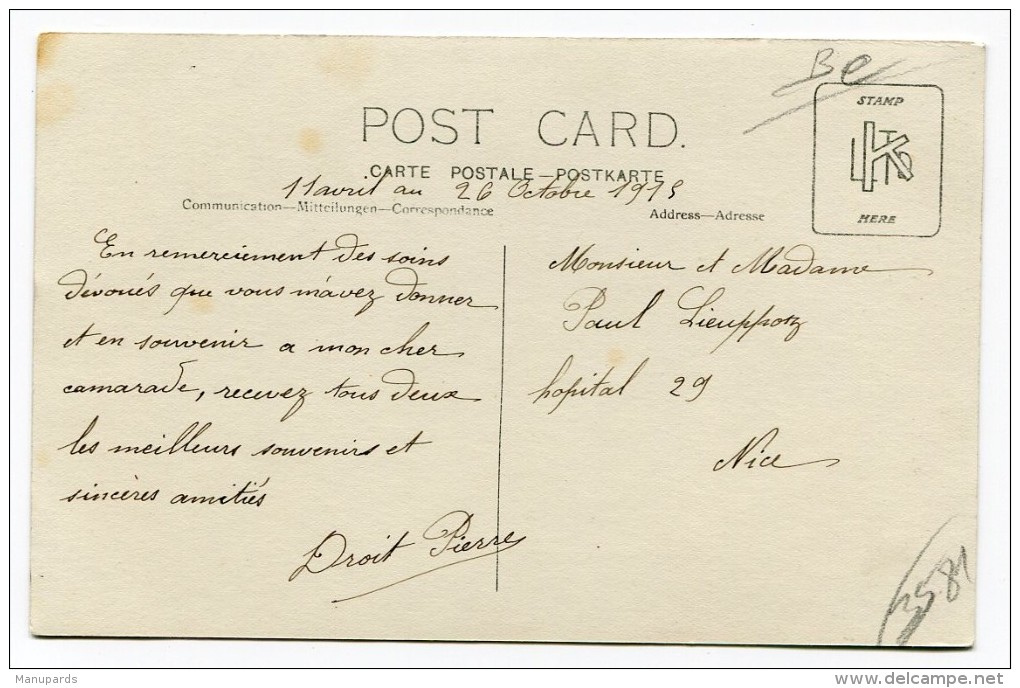 Be
STAMP
HERE
POST CARD.
CARTE POSTALE—POSTKARTE
11 avril au 26 Octobre 1915
Communication—Mitteilungen—Correspondance
Address—Adresse
En remerciement des soins
dévoués que vous m'avez donner
et en souvenir a mon cher
camarade, recevez tous deux
les meilleurs souvenirs et
sincères amitiés
Droit Pierre
Monsieur et Madame
Paul
hopital 29
Nice
3581
Manupards
delcampe.net